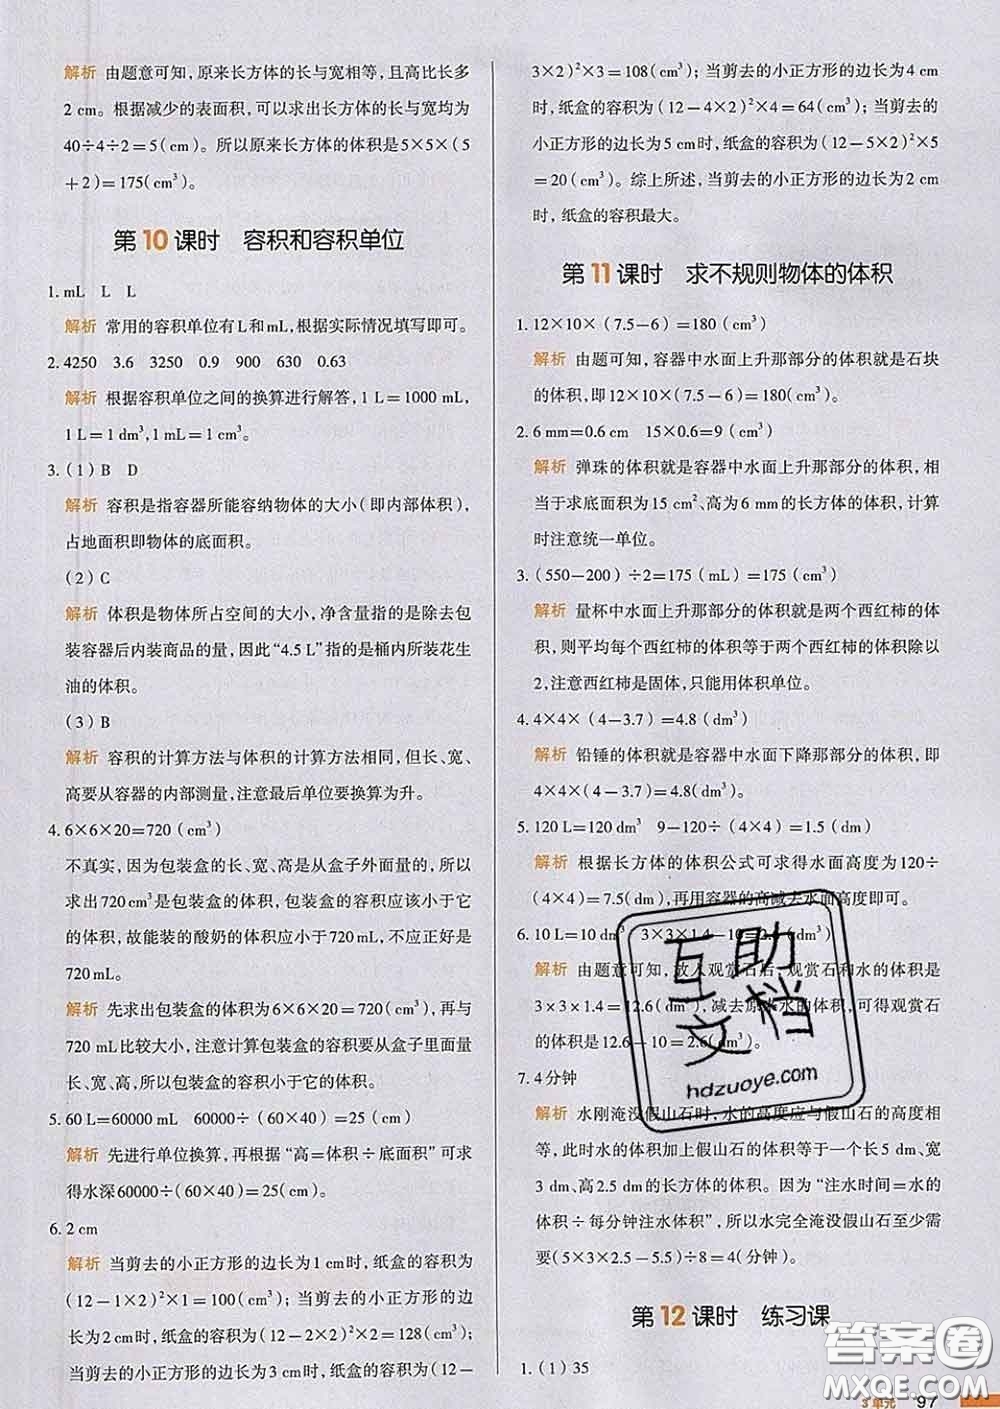 解析 由题意可知，原来长方体的长与宽相等，且高比长多
2 cm。根据减少的表面积，可以求出长方体的长与宽均为
40÷4÷2=5(cm)。所以原来长方体的体积是5×5×(5
+2)=175(cm³)。
第10课时 容积和容积单位
1. mL L L
解析 常用的容积单位有L和mL，根据实际情况填写即可。
2. 4250 3.6 3250 0.9 900 630 0.63
解析 根据容积单位之间的换算进行解答，1 L=1000 mL，
1 L=1 dm³，1 mL=1 cm³。
3. (1) B D
解析 容积是指容器所能容纳物体的大小(即内部体积)，
占地面积即物体的底面积。
(2) C
解析 体积是物体所占空间的大小，净含量指的是除去包
装容器后内装商品的量，因此“4.5 L”指的是桶内所装花生
油的体积。
(3) B
解析 容积的计算方法与体积的计算方法相同，但长、宽、
高要从容器的内部测量，注意最后单位要换算为升。
4. 6×6×20=720(cm³)
不真实，因为包装盒的长、宽、高是从盒子外面量的，所以
求出720 cm³是包装盒的体积，包装盒的容积应该小于它
的体积，故能装的酸奶的体积应小于720 mL，不应正好是
720 mL。
解析 先求出包装盒的体积为6×6×20=720(cm³)，再与
720 mL比较大小，注意计算包装盒的容积要从盒子里面量
长、宽、高，所以包装盒的容积小于它的体积。
5. 60 L=60000 mL 60000÷(60×40)=25(cm)
解析 先进行单位换算，再根据“高=体积÷底面积”可求
得水深60000÷(60×40)=25(cm)。
6. 2 cm
解析 当剪去的小正方形的边长为1 cm时，纸盒的容积为
(12-1×2)²×1=100(cm³)；当剪去的小正方形的边
长为2 cm时，纸盒的容积为(12-2×2)²×2=128(cm³)；
当剪去的小正方形的边长为3 cm时，纸盒的容积为(12-
3×2)²×3=108(cm³)；当剪去的小正方形的边长为4 cm
时，纸盒的容积为(12-4×2)²×4=64(cm³)；当剪去的
小正方形的边长为5 cm时，纸盒的容积为(12-5×2)²×5
=20(cm³)。综上所述，当剪去的小正方形的边长为2 cm
时，纸盒的容积最大。
第11课时 求不规则物体的体积
1. 12×10×(7.5-6)=180(cm³)
解析 由题可知，容器中水面上升那部分的体积就是石块
的体积，即12×10×(7.5-6)=180(cm³)。
2. 6 mm=0.6 cm 15×0.6=9(cm³)
解析 弹珠的体积就是容器中水面上升那部分的体积，相
当于求底面积为15 cm²、高为6 mm的长方体的体积，计算
时注意统一单位。
3. (550-200)÷2=175(mL)=175(cm³)
解析 量杯中水面上升那部分的体积就是两个西红柿的体
积，则平均每个西红柿的体积等于两个西红柿的体积除以
2，注意西红柿是固体，只能用体积单位。
4. 4×4×(4-3.7)=4.8(dm³)
解析 铅锤的体积就是容器中水面下降那部分的体积，即
4×4×(4-3.7)=4.8(dm³)。
5. 120 L=120 dm³ 9-120÷(4×4)=1.5(dm)
解析 根据长方体的体积公式可求得水面高度为120÷
(4×4)=7.5(dm)，再用容器的高减去水面高度即可。
6. 10 L=10 dm³ 3×3×1.4-10=2.6(dm³)
解析 由题意可知，放入观赏石后，观赏石和水的体积是
3×3×1.4=12.6(dm³)，减去原来水的体积，可得观赏石
的体积是12.6-10=2.6(dm³)。
7. 4分钟
解析 水刚淹没假山石时，水的高度应与假山石的高度相
等，此时水的体积加上假山石的体积等于一个长5 dm、宽
3 dm、高2.5 dm的长方体的体积。因为“注水时间=水的
体积÷每分钟注水体积”，所以水完全淹没假山石至少需要
(5×3×2.5-5.5)÷8=4(分钟)。
第12课时 练习课
1. (1) 35
3单元 97
互助文档
hdzuoye.com
答案圈
MXQE.COM